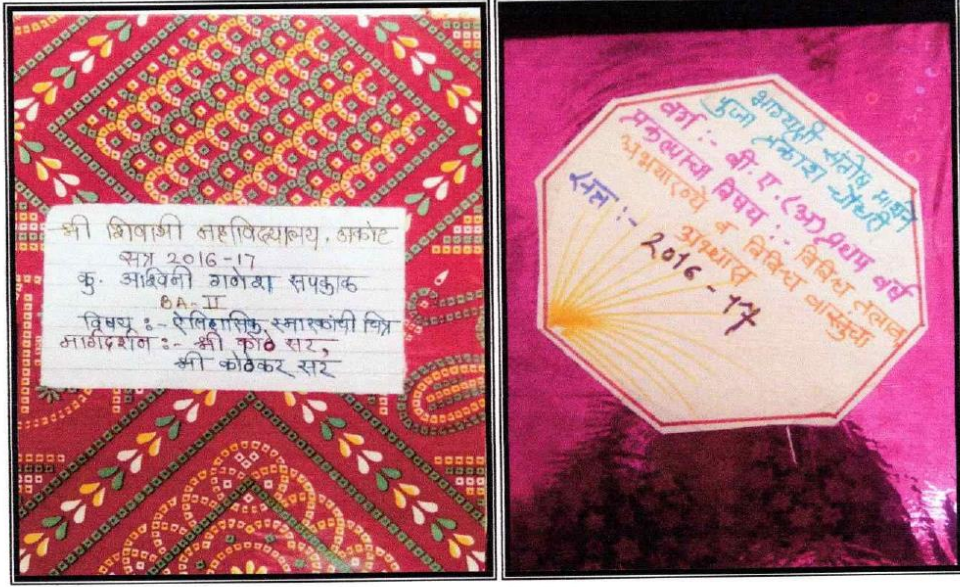 श्री शिवाजी महाविद्यालय, अकोट
सत्र 2016-17
कु. आश्विनी गणेश सपकाळ
BA-II
विषय :- ऐतिहासिक स्मारकांची चित्र
मार्गदर्शन :- श्री कोठे सर,
श्री कोठेकर सर
भाग्यश्री संतोष
पुजा प्रकाश चौधरी
वर्ग :- बी.ए.(अ) प्रथम वर्ष
प्रकल्पाचा विषय :- विविध तलाव
अभयारण्ये व विविध वास्तुंचा
अभ्यास
सत्र :- 2016-17